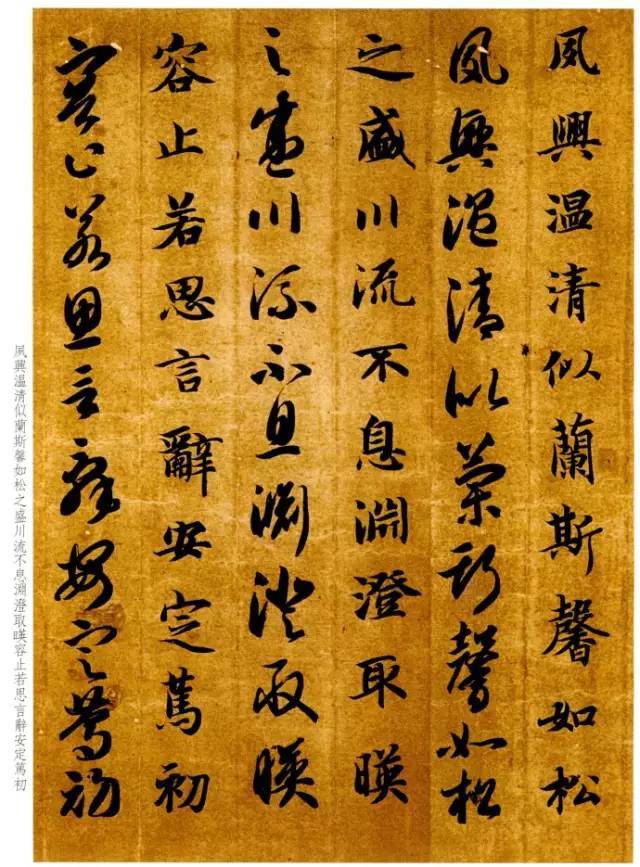 夙興温清似蘭斯馨如松
夙興温清似蘭斯馨如松
之盛川流不息淵澄取暎
之盛川流不息淵澄取暎
容止若思言辭安定篤初
容止若思言辭安定篤初
夙興温清似蘭斯馨如松之盛川流不息淵澄取暎容止若思言辭安定篤初